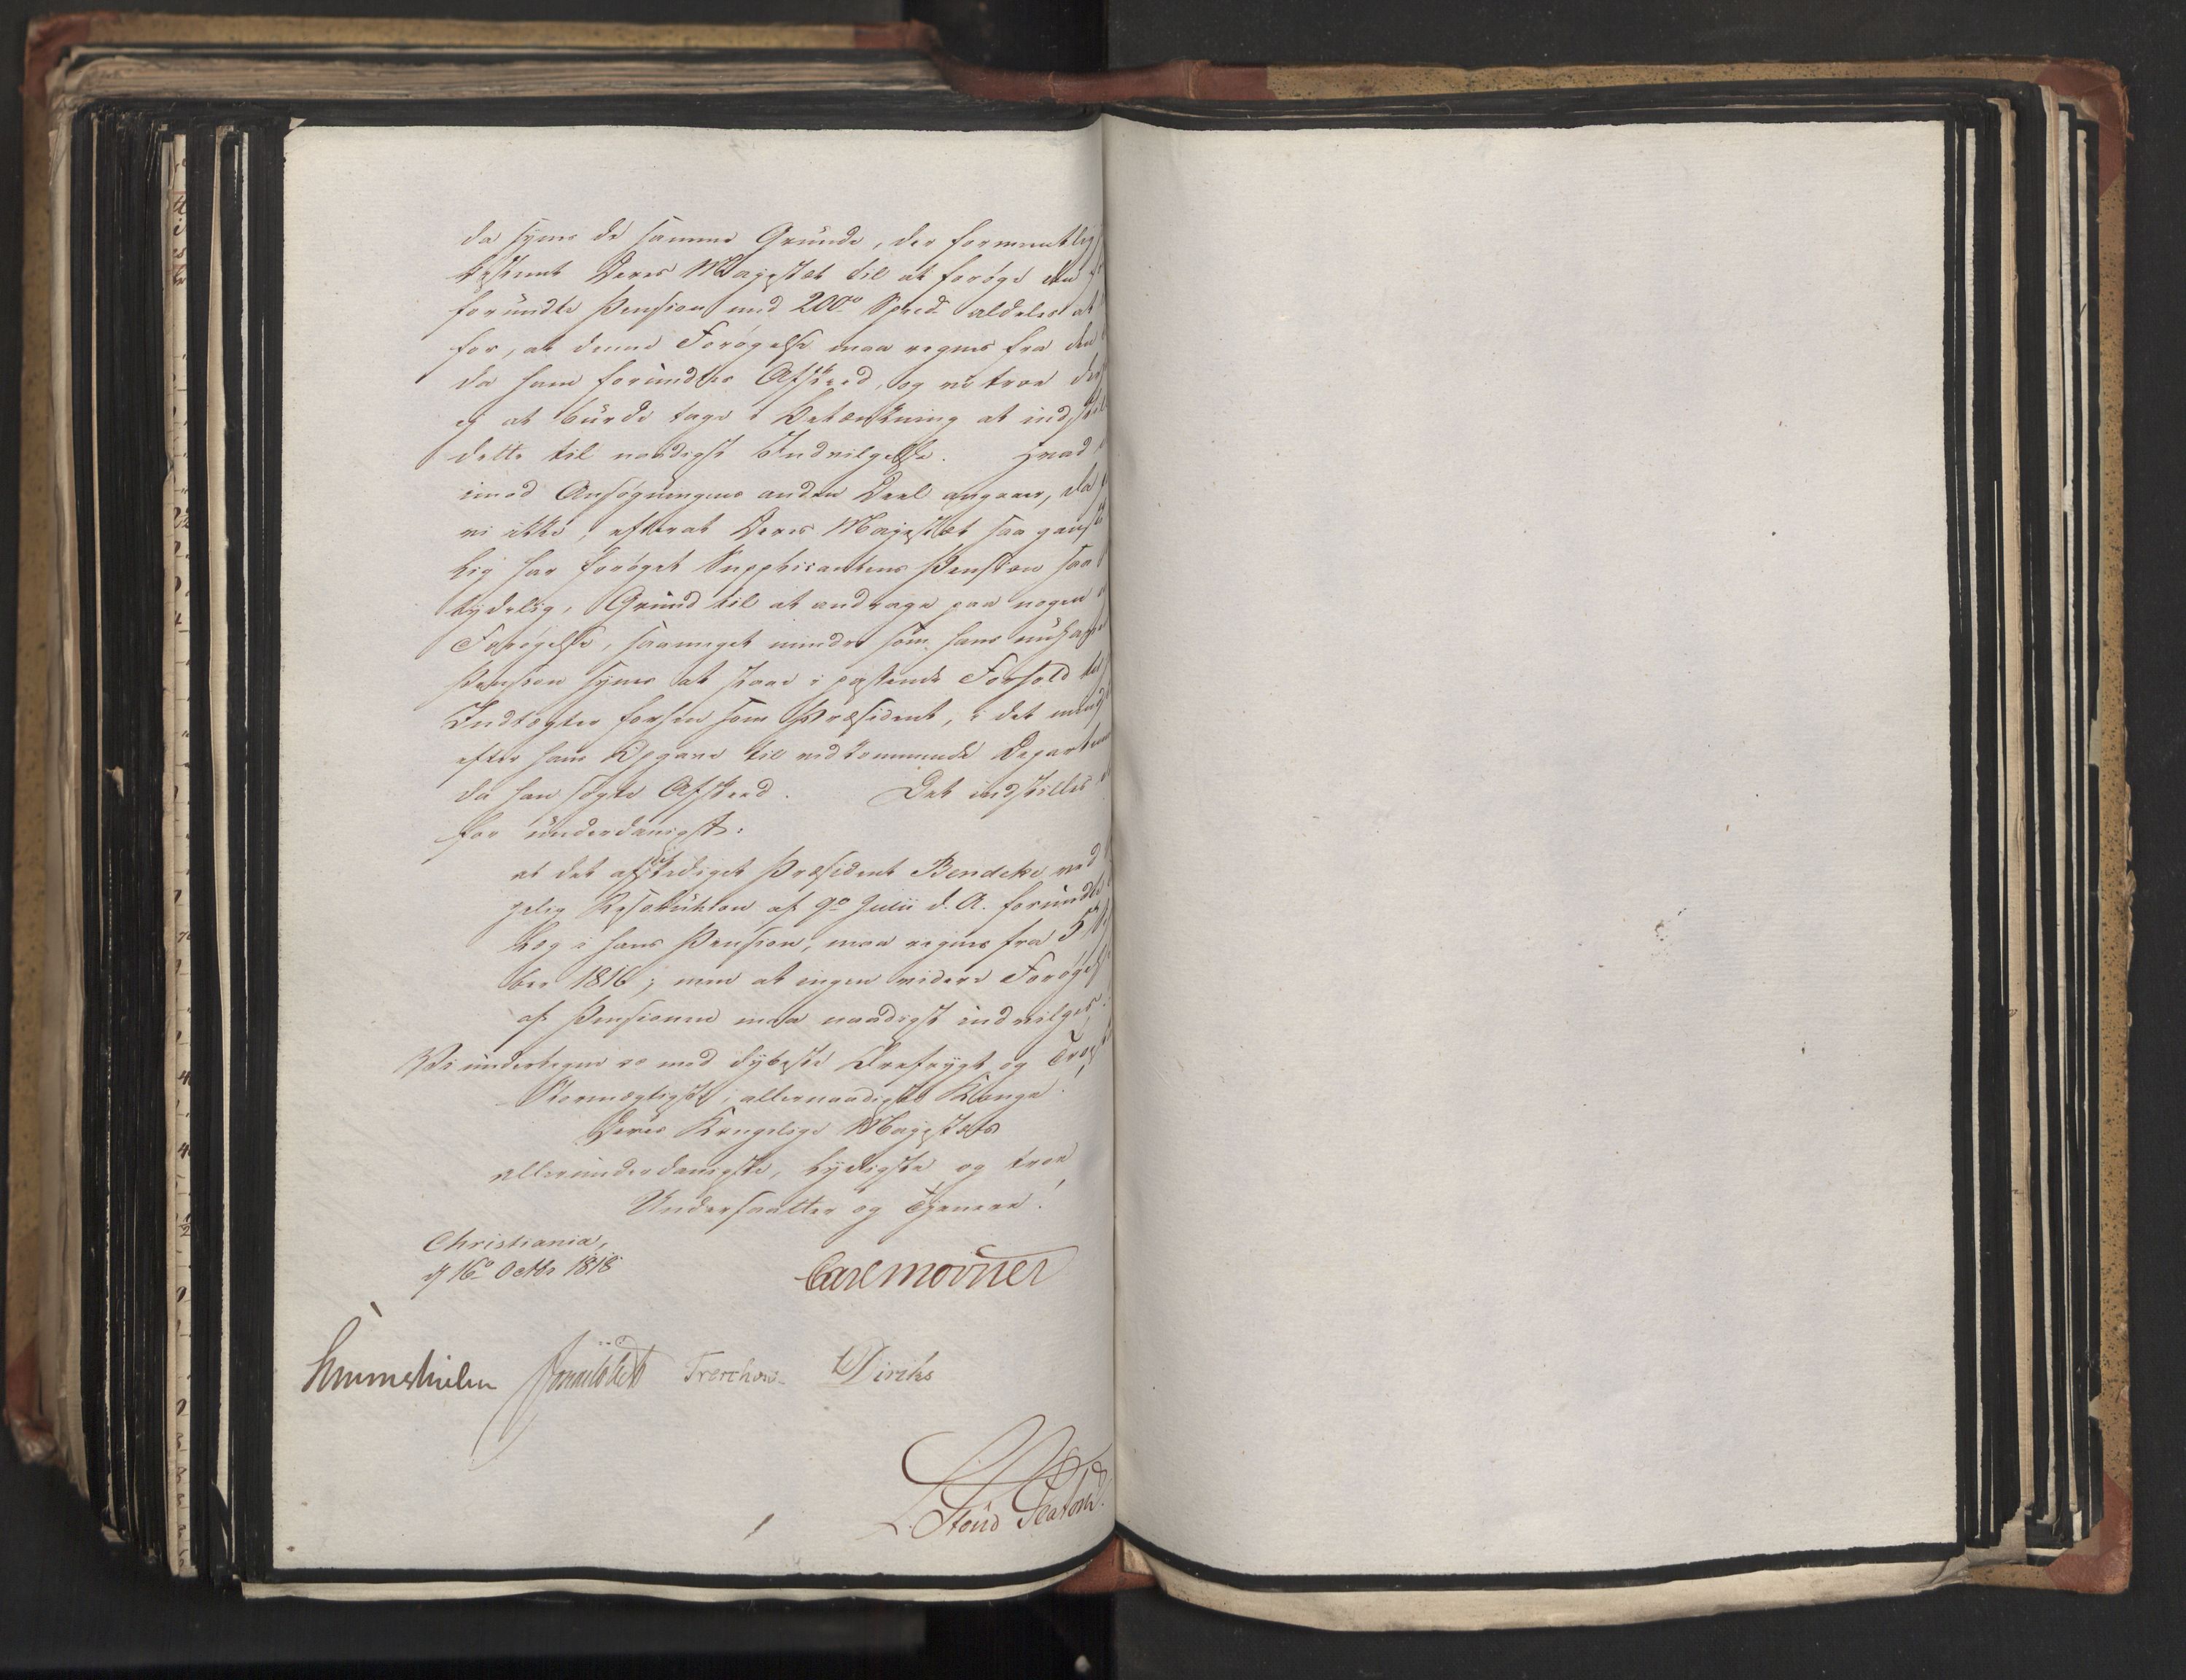 da synes de samme Grunde, der formentlig
bestemt Deres Majestæt til at forøge den
forundte Pension med 200 Specd aldeles at
for, at denne Forøgelse maa regnes fra den
da ham forundtes Afskeed, og vi troe der
ej at burde tage i Betænkning at indstille
dette til naadigst Indvilgelse. Hvad
imod Ansøgningens anden Deel angaaer, da
vi ikke, efterat Deres Majestæt saa
lig har forøget Supplicantens Pension saa
tydelig, Grund til at andrage paa nogen
Forøgelse, saameget mindre som hans
Pension synes at staae i passende Forhold til
Indtægter forhen som Præsident, i det
efter hans Opgave til vedkommende Departem
da han søgte Afskeed. Det indstilles
for underdanigst:
at det afskediget Præsident Bendeke ved
gelig Resolution af 9de Julii d. A. forundte
læg i hans Pension, maa regnes fra 5
ber 1816; men at ingen videre Forøgelse
af Pensionen maa naadigst indvilges.
Vi undertegne os med dybeste Ærefrygt og
Stormægtigste, allernaadigste Konge!
Deres Kongelige Majestæts
allerunderdanigste, lydigste og troe
Undersaatter og Tjenere!
Christiania,
d 16de Octbr 1818
Carl Mörner
Sommerhielm Treschow Diriks
L. Stoud Platou